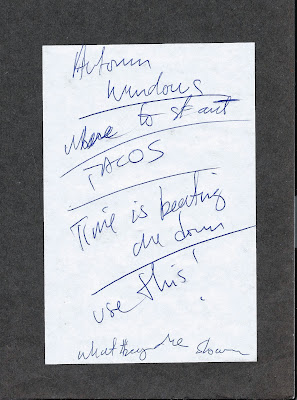 Autumn
Windows
where to start
TACOS
Time is beating
me down
use this!
what they're shown